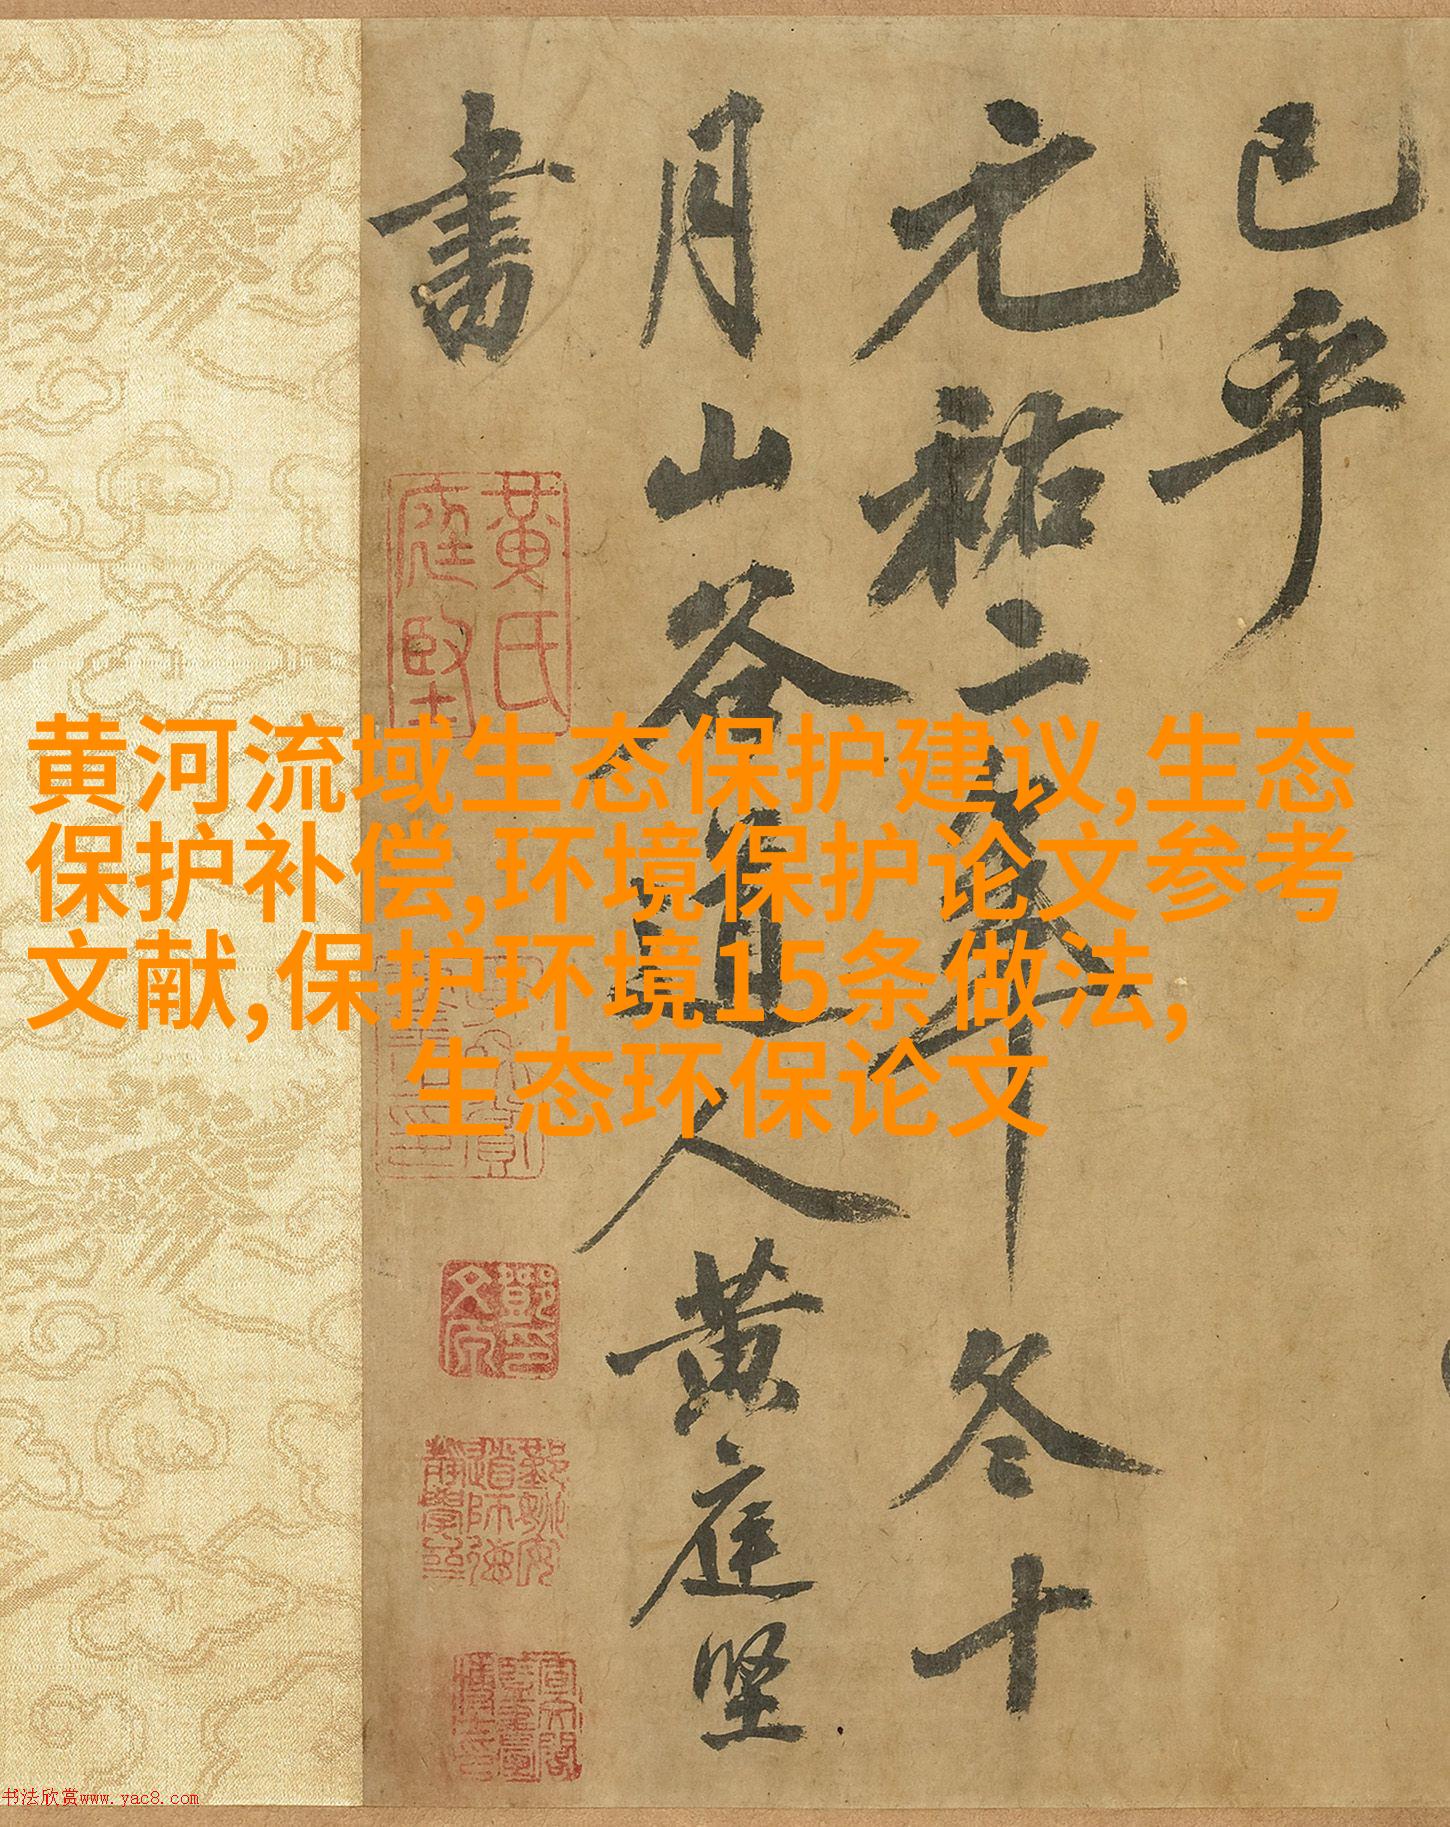 已乎
元祐二年冬十
月山谷道人黄庭坚
書
黄氏庭堅
黄河流域生态保护建议,生态
保护补偿,环境保护论文参考
文献,保护环境15条做法,
生态环保论文
书法欣赏www.yac8.com